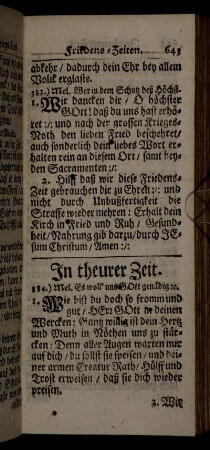 Friedens-Zeiten. 643
abkehr / dadurch dein Ehr bey allem
Volck erglaste.
383.) Mel. Wer in dem Schutz deß Höchst.
1. Wir dancken dir / O höchster
GOtt! daß du uns hast erhö-
ret :/: und nach der grossen Krieges-
Noth den lieben Fried bescheret /
auch sonderlich dein liebes Wort er-
halten rein an diesem Ort / samt bey-
den Sacramenten :/:
2. Hilff daß wir diese Friedens-
Zeit gebrauchen dir zu Ehren :/: und
nicht durch Unbußfertigkeit die
Straffe wieder mehren : Erhalt dein
Kirch in Fried und Ruh / Gesund-
heit / Nahrung gib darzu / durch JE-
sum Christum / Amen :/:
In theurer Zeit.
384.) Mel. Es woll uns GOtt genädig ꝛc.
1. Wie bist du doch so fromm und
gut / HErꝛ GOtt in deinen
Wercken : Gantz willig ist dein Hertz
und Muth in Nöthen uns zu stär-
cken : Denn aller Augen warten nur
auf dich / du sollst sie speisen / und dei-
ner armen Creatur Rath / Hülff und
Trost erweisen / daß sie dich wieder
preisen.
2. Wir